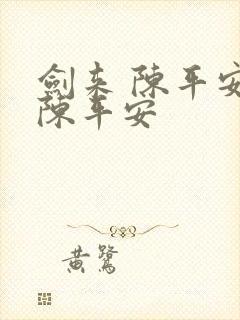 劍来 陳平安
陳平安
黃鷺